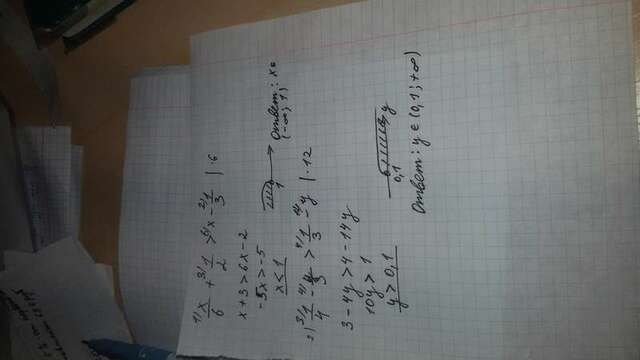 1) x/6 + 3) 1/2 > 6) x - 2) 1/3 | ·6
x + 3 > 6x - 2
-5x > -5
x < 1
1
Ответ: x ∈
(-∞; 1)
2) 3) 1/4 - 4) y/3 > 4) 1/3 - y | ·12
3 - 4y > 4 - 14y
10y > 1
y > 0,1
0,1 y
Ответ: y ∈ (0,1; +∞)